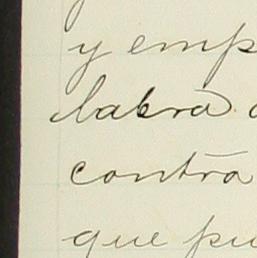 y emp
labra
contra
que pu